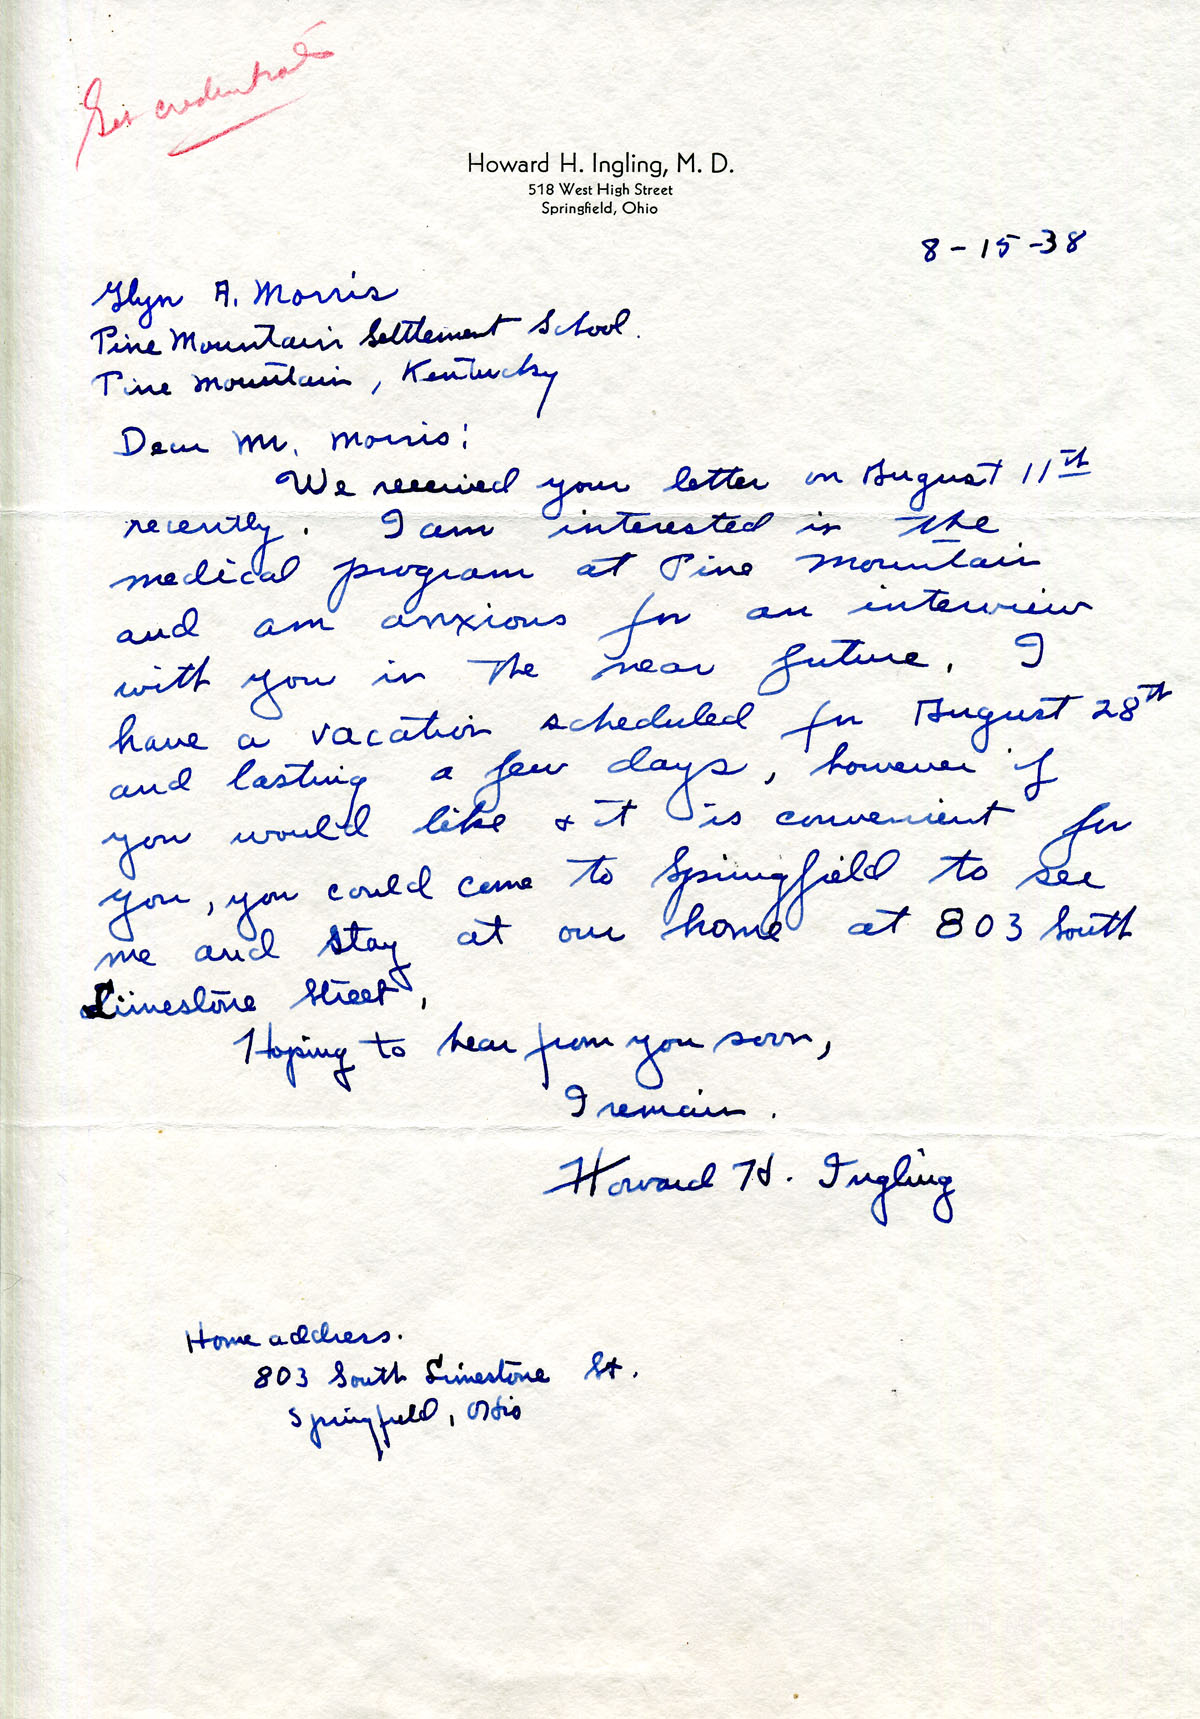 Get credentials
Howard H. Ingling, M. D.
518 West High Street
Springfield, Ohio
8-15-38
Glyn A. Morris
Pine Mountain Settlement School.
Pine Mountain, Kentucky
Dear Mr. Morris:
We received your letter on August 11th
recently. I am interested in the
medical program at Pine Mountain
and am anxious for an interview
with you in the near future. I
have a vacation scheduled for August 28th
and lasting a few days, however if
you would like & it is convenient for
you, you could come to Springfield to see
me and stay at our home at 803 South
Limestone Street.
Hoping to hear from you soon,
I remain.
Howard H. Ingling
Home address.
803 South Limestone St.
Springfield, Ohio